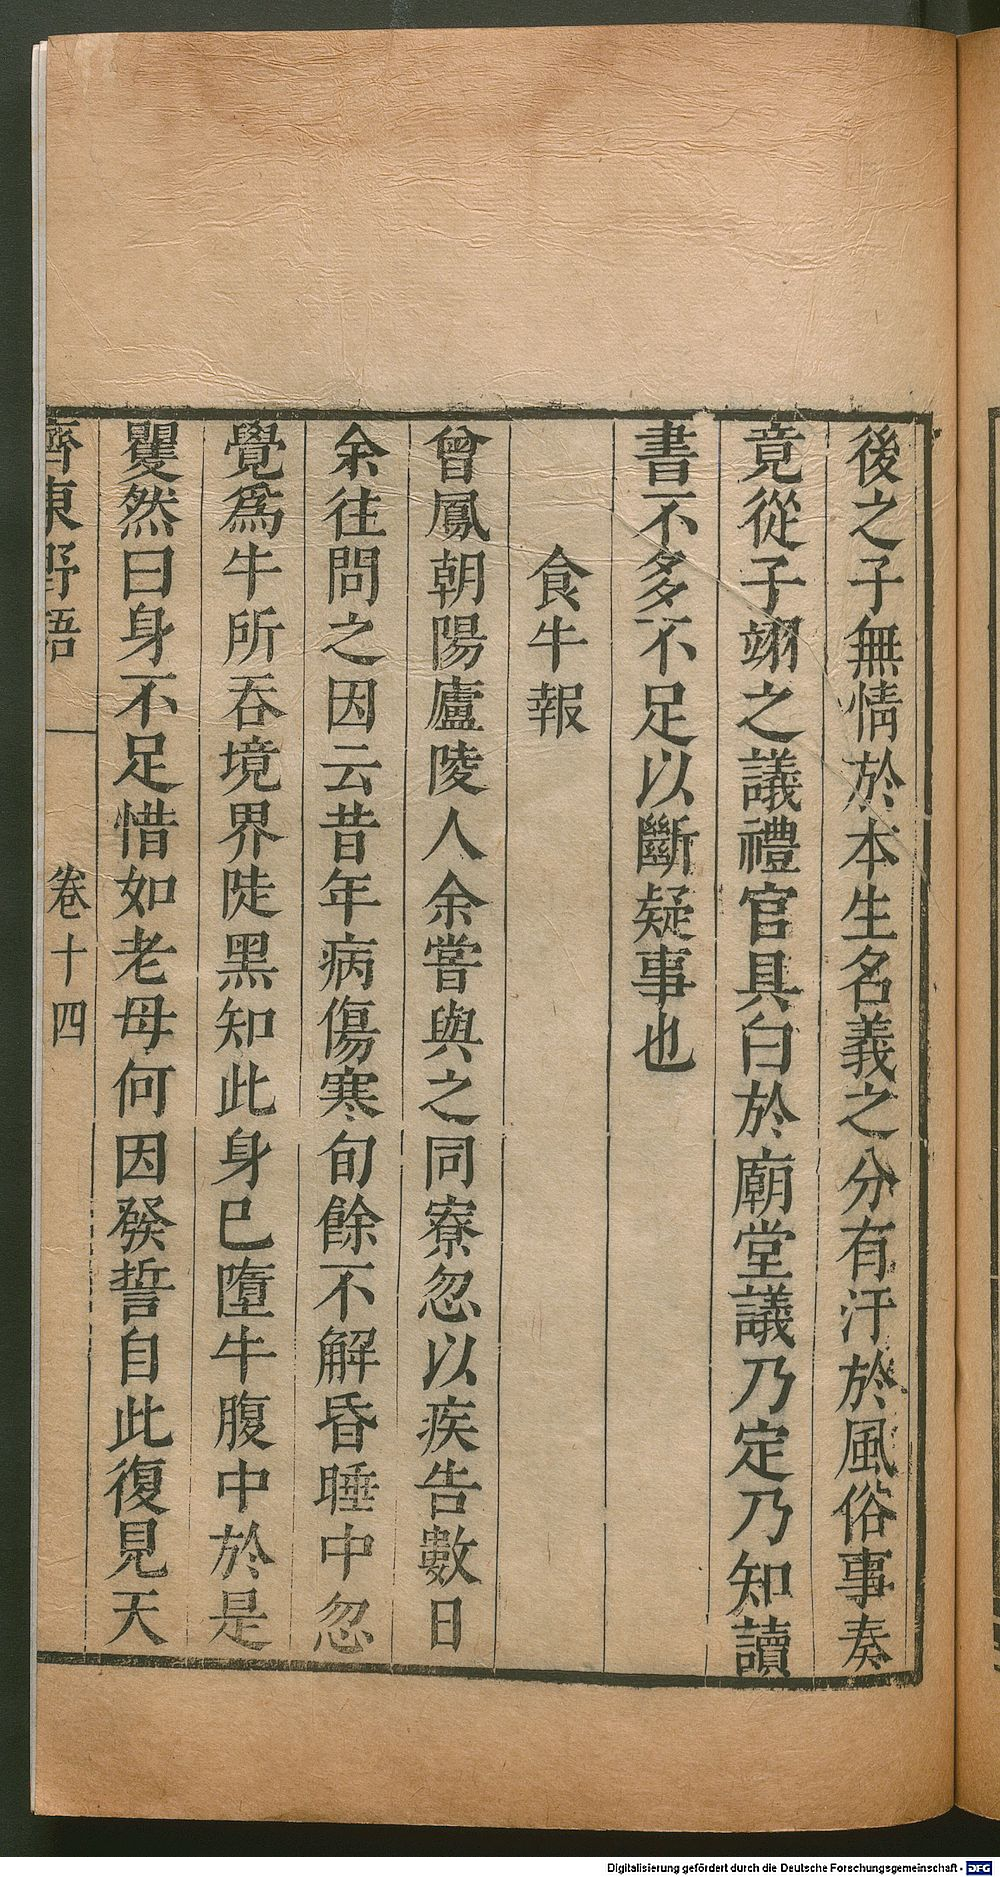 後之子無情於本生名義之分有汙於風俗事奏
竟從子翊之議禮官具白於廟堂議乃定乃知讀
書不多不足以斷疑事也
食牛報
曾鳳朝陽廬陵人余嘗與之同寮忽以疾告數日
余往問之因云昔年病傷寒旬餘不解昏睡中忽
覺爲牛所吞境界陡黑知此身已墮牛腹中於是
矍然曰身不足惜如老母何因發誓自此復見天
齊東野語 卷十四
Digitalisierung gefördert durch die Deutsche Forschungsgemeinschaft - DFG